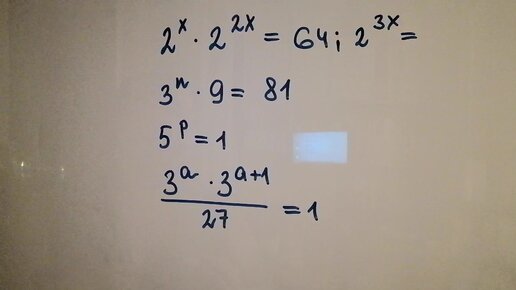 2^x · 2^{2x} = 64; 2^{3x} =
3^n · 9 = 81
5^p = 1
\frac{3^a · 3^{a+1}}{27} = 1